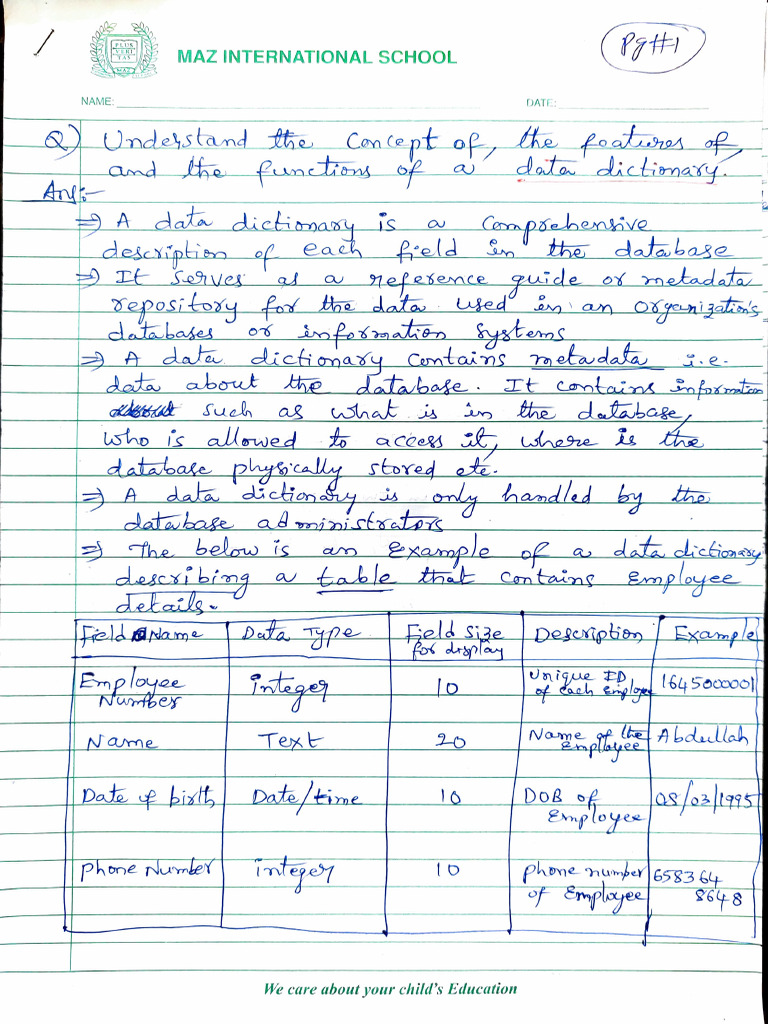 PLUS VERI TAS MAZ
MAZ INTERNATIONAL SCHOOL
Pg#1
NAME:
DATE:
Q) Understand the Concept of, the features of,
and the functions of a data dictionary.
Ans:-
⇒ A data dictionary is a Comprehensive
description of each field in the database
⇒ It serves as a reference guide or metadata
repository for the data used in an organization's
databases or information systems
⇒ A data dictionary contains metadata i.e.
data about the database. It contains information
such as what is in the database,
who is allowed to access it, where is the
database physically stored etc.
⇒ A data dictionary is only handled by the
database administrators
⇒ The below is an Example of a data dictionary
describing a table that contains Employee
details.
Field Name Data Type Field Size for display Description Example
Employee Number integer 10 Unique ID of each employee 1645000001
Name Text 20 Name of the Employee Abdullah
Date of birth Date/time 10 DOB of Employee 08/03/1995
Phone Number integer 10 phone number of Employee 658364 8648
We care about your child's Education